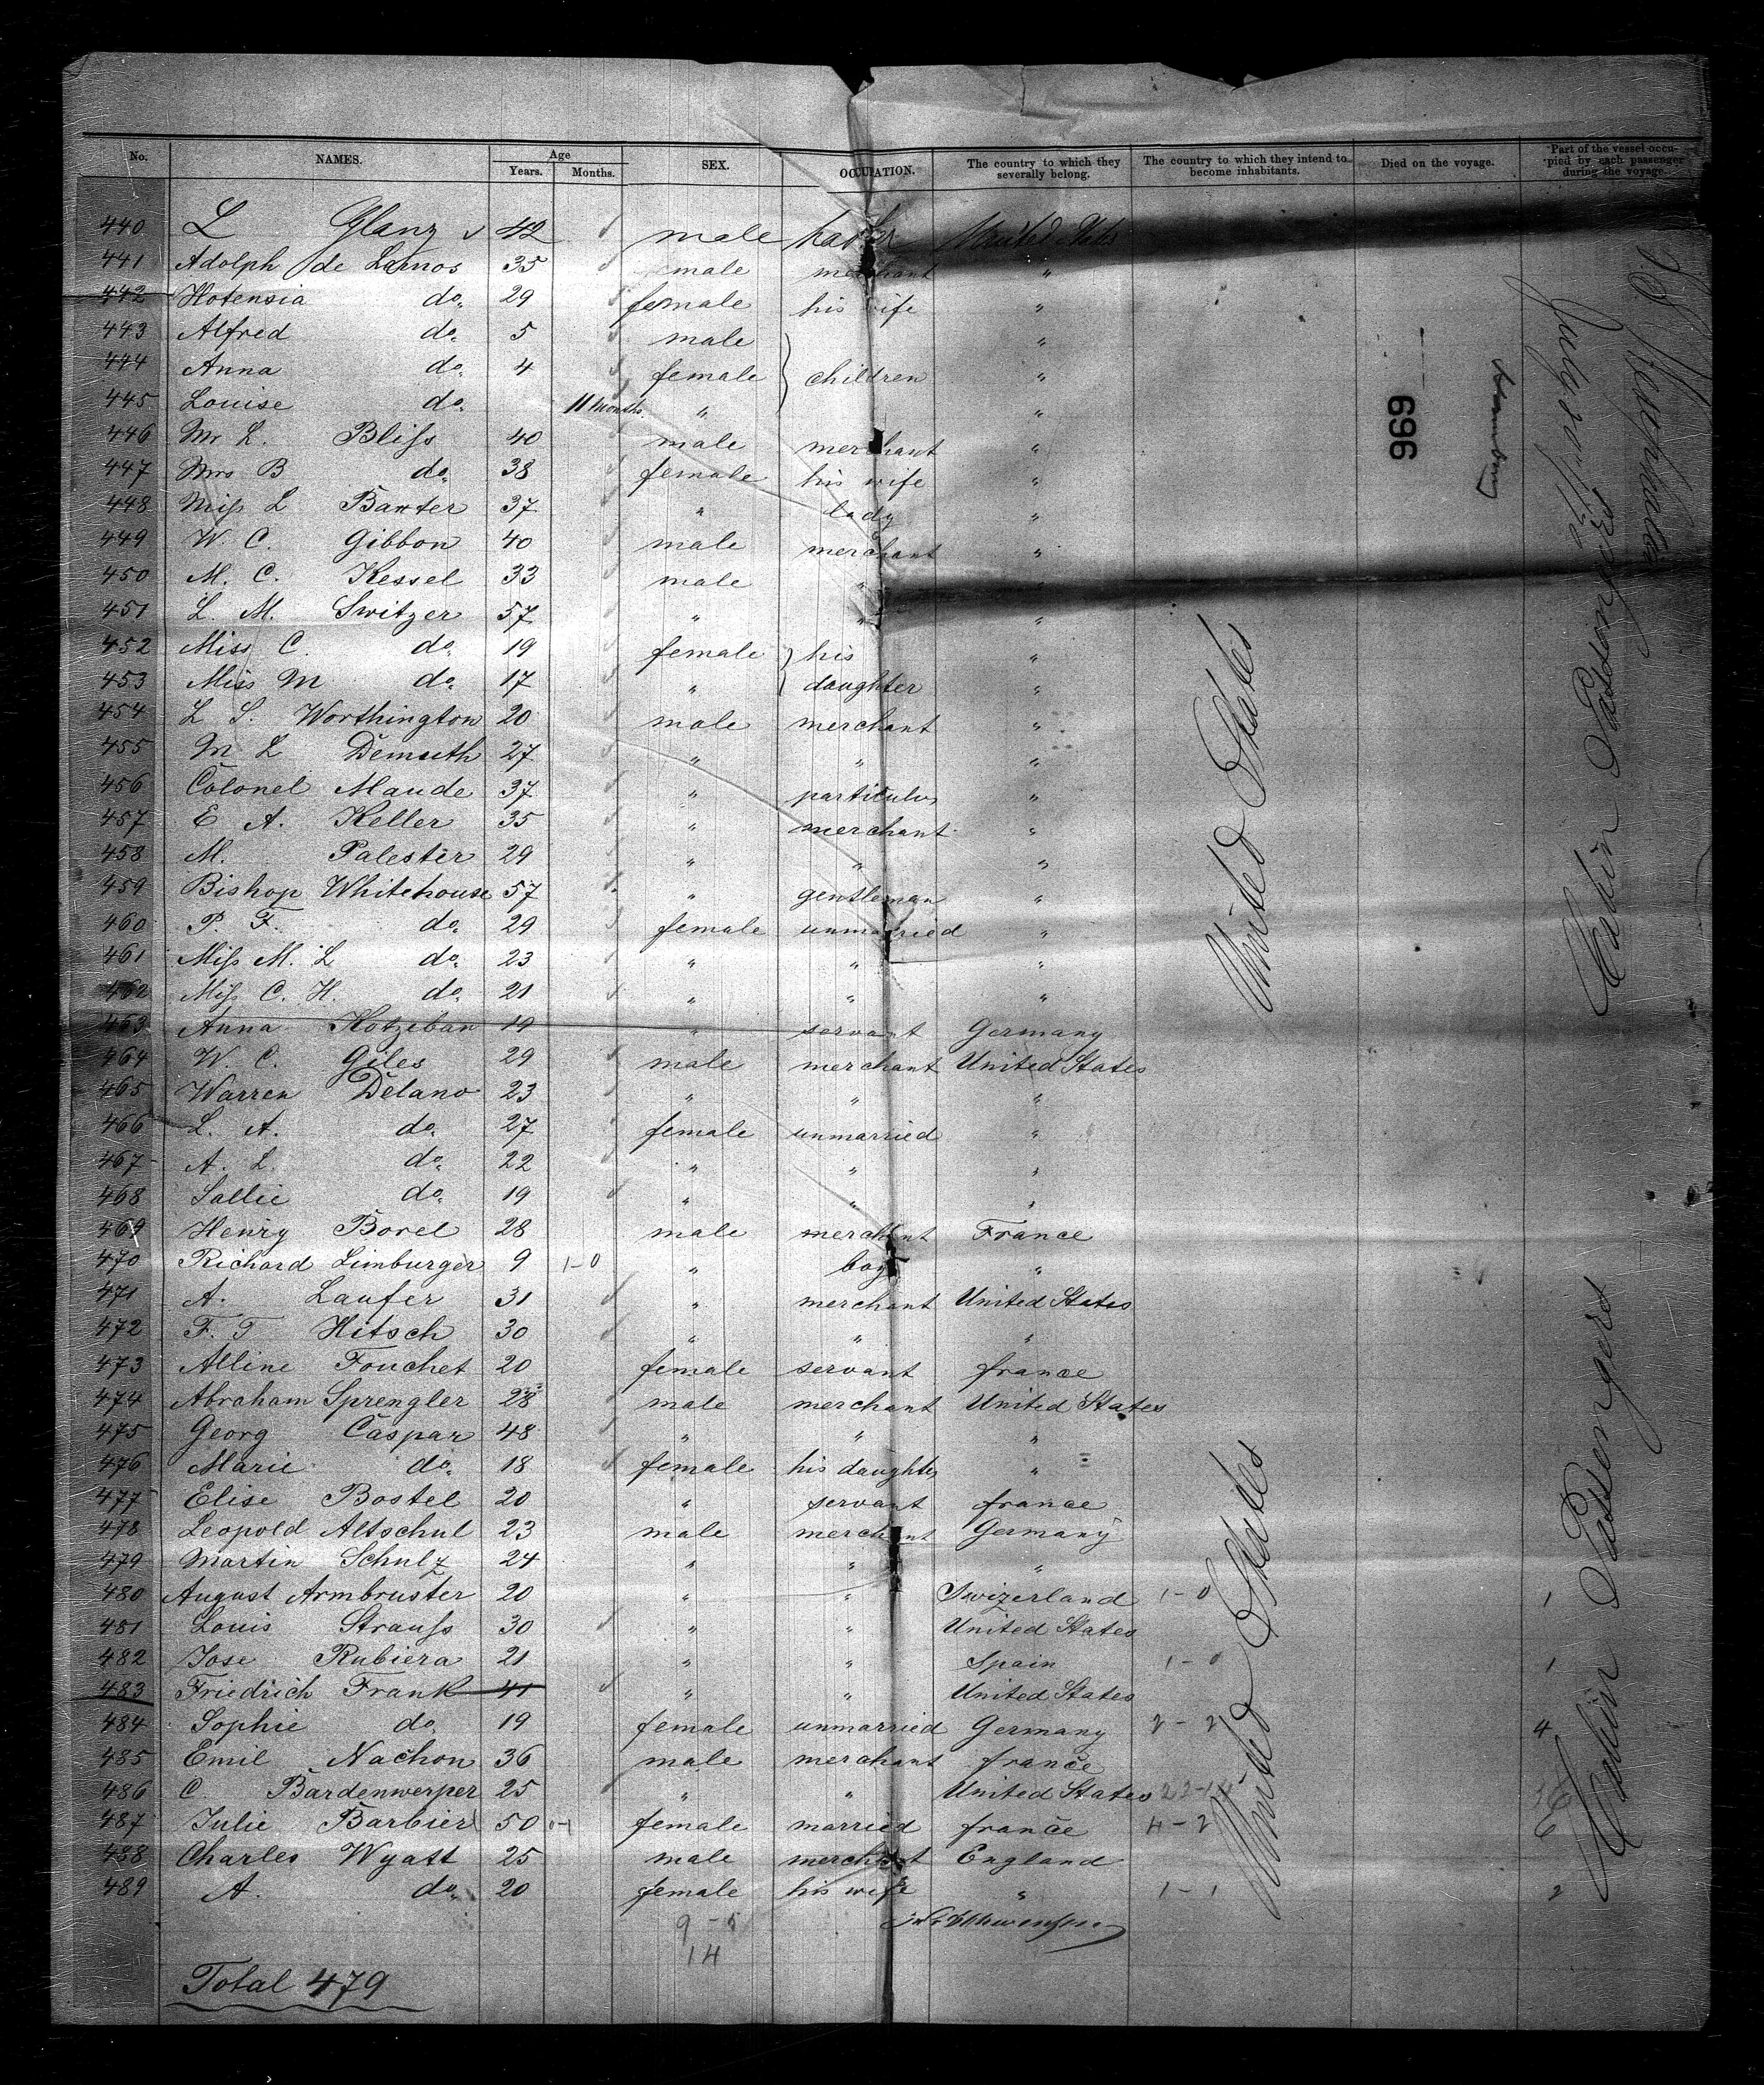 No. NAMES. Age Years. Months. SEX. OCCUPATION. The country to which they severally belong. The country to which they intend to become inhabitants. Died on the voyage. Part of the vessel occupied by each passenger during the voyage.
440 L Glanz 42 male United States
441 Adolph de Lamos 35 male merchant "
442 Hotensia do. 29 female his wife "
443 Alfred do. 5 male "
444 Anna do. 4 female children "
445 Louise do. 11 months. " "
446 Mr L. Bliss 40 male merchant "
447 Mrs B do. 38 female his wife "
448 Miss L Baxter 37 " lady "
449 W. C. Gibbon 40 male merchant "
450 M. C. Kessel 33 male " "
451 L. M. Switzer 57 " " "
452 Miss C. do. 19 female his "
453 Miss M do. 17 " daughter "
454 L S. Worthington 20 male merchant "
455 M L Demuth 27 " " "
456 Colonel Maude 37 " particulus "
457 E A. Keller 35 " merchant "
458 M. Palester 29 " " "
459 Bishop Whitehouse 57 " gentleman "
460 P. F. do. 29 female unmarried "
461 Miss M. L do. 23 " " "
462 Miss C. H. do. 21 " " "
463 Anna Kotzebau 19 " servant Germany
464 W. C. Giles 29 male merchant United States
465 Warren Delano 23 " " "
466 L. A. do. 27 female unmarried "
467 A. L. do. 22 " " "
468 Sallie do. 19 " " "
469 Henry Borel 28 male merchant France
470 Richard Limburger 9 1-0 " boy "
471 A. Laufer 31 " merchant United States
472 F. T Hitsch 30 " " "
473 Alline Fouchet 20 female servant france
474 Abraham Sprengler 28 male merchant United States
475 Georg Caspar 48 " " "
476 Marie do. 18 female his daughter "
477 Elise Bostel 20 " servant france
478 Leopold Altschul 23 male merchant Germany
479 Martin Schulz 24 " " "
480 August Armbruster 20 " " Swizerland 1-0 1
481 Louis Strauss 30 " " United States
482 Jose Rubiera 21 " " Spain 1-0 1
483 Friedrich Frank 41 " " United States
484 Sophie do. 19 female unmarried Germany 2-2 4
485 Emil Nachon 36 male merchant france
486 C. Bardenwerper 25 " " United States 22-14
487 Julie Barbier 50 0-1 female married france 4-2 6
488 Charles Wyatt 25 male merchant England
489 A. do. 20 female his wife " 1-1 2
9-5
14
Total 479
United States
United States
969
Cabin Passengers
Cabin Passengers